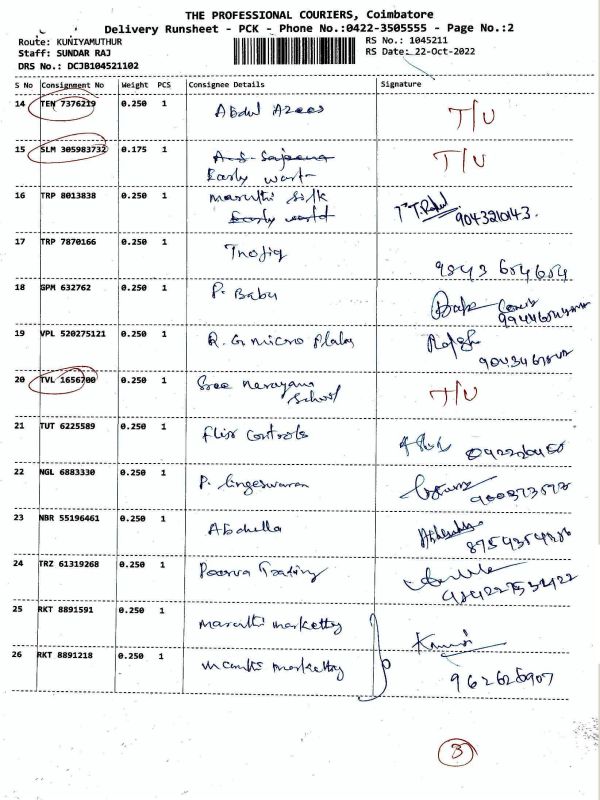 THE PROFESSIONAL COURIERS, Coimbatore
Delivery Runsheet - PCK - Phone No.:0422-3505555 - Page No.:2
Route: KUNIYAMUTHUR RS No.: 1045211
Staff: SUNDAR RAJ RS Date: 22-Oct-2022
DRS No.: DCJB104521102
S No Consignment No Weight PCS Consignee Details Signature
14 TEN 7376219 0.250 1 Abdul Azees T/U
15 SLM 305983732 0.175 1 A.S. Sajeena T/U
Early
16 TRP 8013838 0.250 1 Maruthi Silk 9043210143.
Early world
17 TRP 7870166 0.250 1 9843 654654
18 GPM 632762 0.250 1 P. Babu
19 VPL 520275121 0.250 1 R. G. Micro
20 TVL 1656700 0.250 1 Sree Narayana T/U
School
21 TUT 6225589 0.250 1 Controls
22 NGL 6883330 0.250 1 P. Lingeswaran
23 NBR 55196461 0.250 1 Abdhella
24 TRZ 61319268 0.250 1 Poorva Trading
25 RKT 8891591 0.250 1 Maruthi Marketting
26 RKT 8891218 0.250 1 Marketting
3